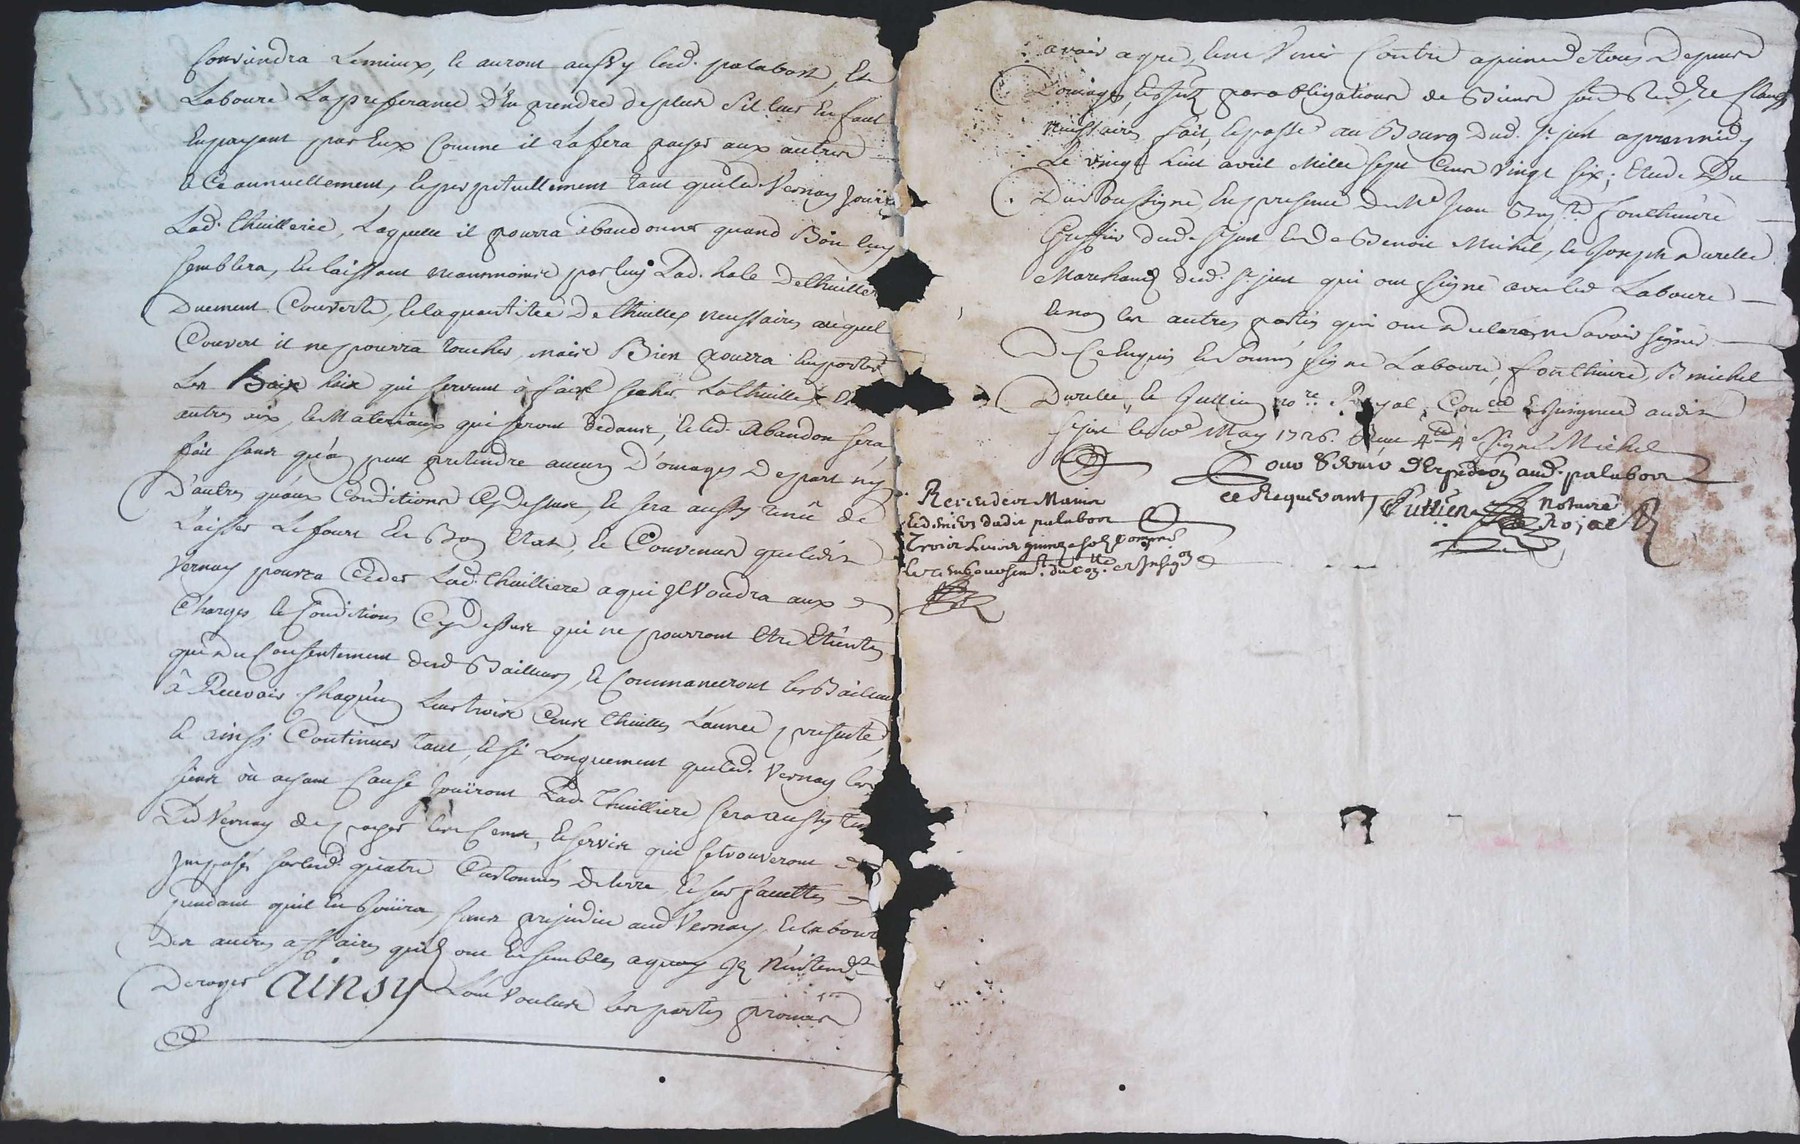 Conviendra Lemieux, et auront aussy lesd. palabost, Et
Laboure Lapresferance d'En prendre desplus sil leur En faut
En payant par Eux Comme il Lasera payer aux autres
a Ce annuellement, et perpetuellement tant queled. Vernay Jouira
Lad. thuilleriee, Laquelle il pourra abandonner quand Bon luy
semblera, En laissant neanmoins par luy Lad. hale De thuillere
Duement Couverte, et la quantitée De thuilles necessaires auquel
Couvert il ne pourra toucher, mais Bien pourra Emporter
Les Baix haix qui servent à faire secher Lathuille,
autres aix, et Materiaux qui seront Dedans, et led. Abandon sera
fait sans qu'on puisse pretendre aucuns D'omages De part ny
D'autres qu'aux Conditions Cydessus, et sera aussy tenû de
Laisser Le fourt En Bon Etat, et Convenus queledit
Vernay pourra Ceder Lad. thuilliere a qui Il Voudra aux
Charges, et Conditions CyDessus qui ne pourront Etre Eteintes
que du Consentement desd Bailleurs, et Commanceront les Bailleurs
â Recevoir Chaqu'un Leur trois Cens thuilles Lannée presente,
et ainsi Continuer tant, et si Longuement queled. Vernay les
siens où ayant Cause Jouiront Lad. Thuilliere sera aussy tenu
Led Vernay de payer les Cens, et servis qui setrouveront
Imposés surlesd. quatre Cartonnées De terre, et sur
pendant quil En Jouira, sans prejudice aud Vernay, et laboure
Des autres affaires quils ont Ensembles aquoy Ils N'entendent
Deroger ainsy Lont Voulus les parties promis
avoir agré, tenir Contre apeine de tous Depens
Domages, et par obligations de Biens soud. Red. et Clauses
necessaires, fait, et passé au Bourg dud. St just apresmidy
Le vingt huit avril Mille sept Cens vingt six; Etude Du
Dud soussigné, En presence de Me Jean Bapte fonthimere
Greffier dud. St just Et de Benoit Michel, et Joseph Durelle
Marchand dud. St just qui ont signé avec led Laboure
Et non les autres parties qui ont declarés ne savoir signé
De Ce Enquis et sommés signé Laboure, fonthimere, B michel
Durelle, et Jullien nore Royal, Conlé Et Insignué audit
St just le 10e May 1726. signé Michel
pour Expedition aud. palabost
ce Requerant Jullien Notaire
Royal
Receu de ma main
les deniers dudit palabost
trois Livres quinze sols Compris